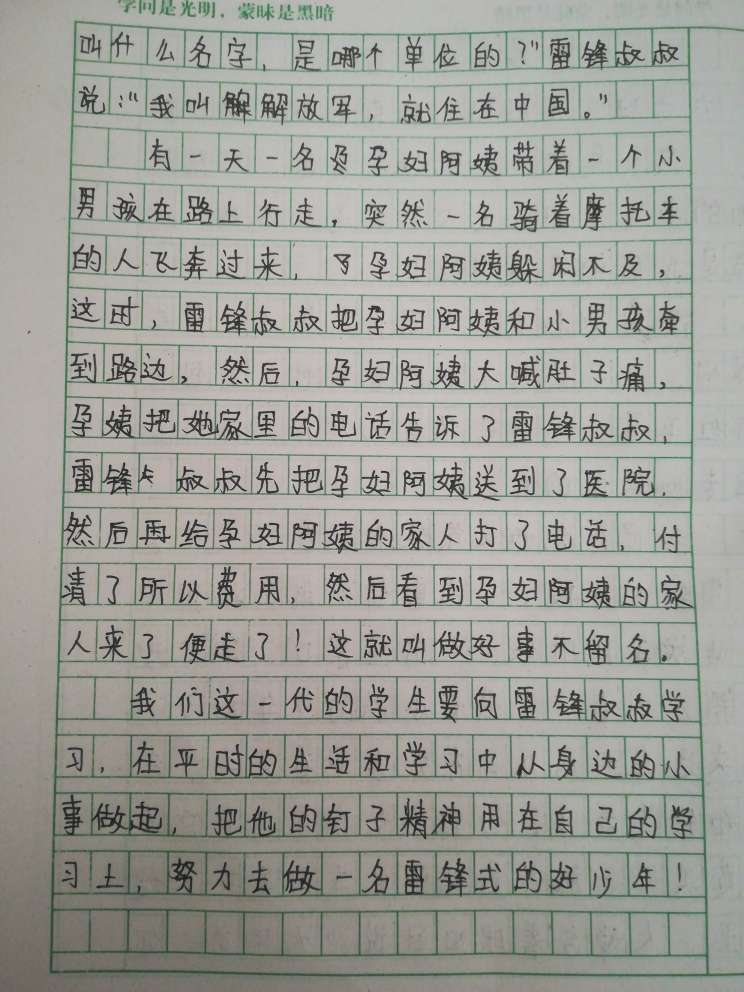 学问是光明，蒙昧是黑暗
叫什么名字，是哪个单位的？"雷锋叔叔
说："我叫解放军，就住在中国。"
有一天一名孕妇阿姨带着一个小
男孩在路上行走，突然一名骑着摩托车
的人飞奔过来，孕妇阿姨躲闲不及，
这时，雷锋叔叔把孕妇阿姨和小男孩牵
到路边，然后，孕妇阿姨大喊肚子痛，
孕姨把她家里的电话告诉了雷锋叔叔，
雷锋叔叔先把孕妇阿姨送到了医院，
然后再给孕妇阿姨的家人打了电话，付
清了所以费用，然后看到孕妇阿姨的家
人来了便走了！这就叫做好事不留名。
我们这一代的学生要向雷锋叔叔学
习，在平时的生活和学习中从身边的小
事做起，把他的钉子精神用在自己的学
习上，努力去做一名雷锋式的好少年！